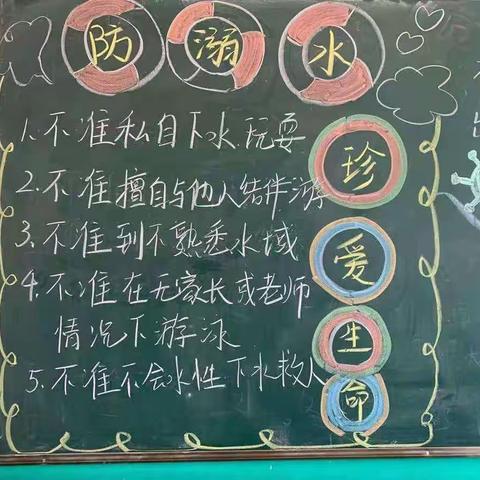 防溺水
1.不准私自下水玩耍
2.不准擅自与他人结伴游
3.不准到不熟悉水域
4.不准在无家长或老师
情况下游泳
5.不准不会水性下水救人
珍
爱
生
命